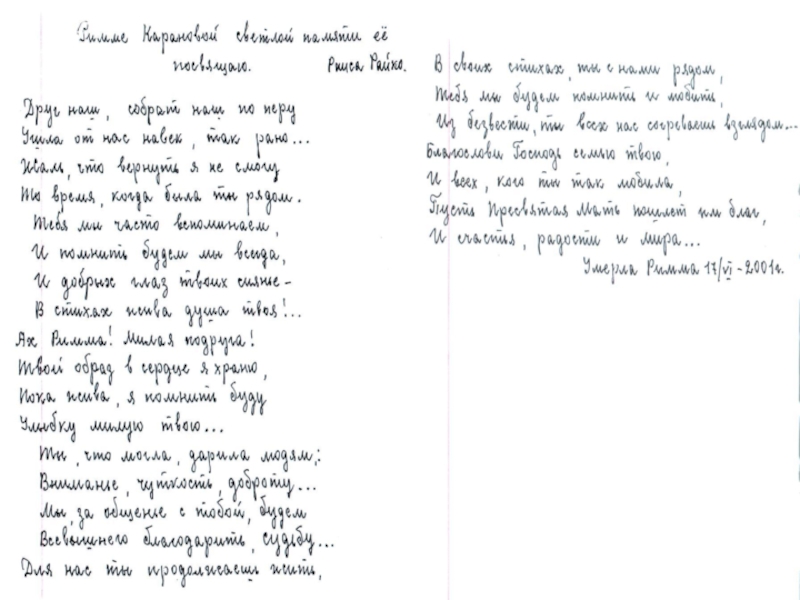 Римме Карановой светлой памяти её
посвящаю. Раиса Райко.
Друг наш, собрат наш по перу
Ушла от нас навек, так рано...
Жаль, что вернуть я не смогу
То время, когда была ты рядом.
Тебя мы часто вспоминаем,
И помнить будем мы всегда,
И добрых глаз твоих сиянье -
В стихах жива душа твоя!..
Ах Римма! Милая подруга!
Твой образ в сердце я храню,
Пока жива, я помнить буду
Улыбку милую твою...
Ты, что могла, дарила людям:
Вниманье, чуткость, доброту...
Мы, за общенье с тобой, будем
Всевышнего благодарить, судьбу...
Для нас ты продолжаешь жить,
В своих стихах, ты с нами рядом,
Тебя мы будем помнить и любить,
Из безвести, ты всех нас согреваешь взглядом...
Благослови Господь семью твою,
И всех, кого ты так любила,
Пусть Пресвятая Мать пошлет им благ,
И счастья, радости и мира...
Умерла Римма 17/VI - 2001г.